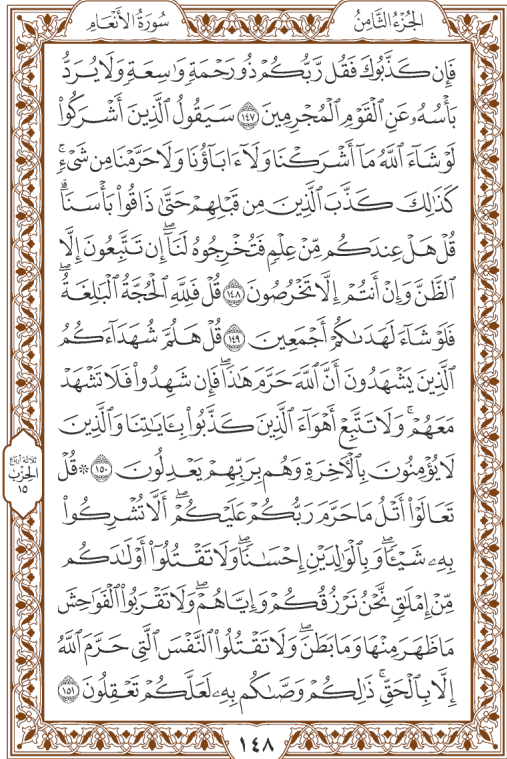 الجُزْءُ الثَّامِنُ
سُورَةُ الأَنْعَامِ
فَإِن كَذَّبُوكَ فَقُل رَّبُّكُمْ ذُو رَحْمَةٍ وَٰسِعَةٍ وَلَا يُرَدُّ
بَأْسُهُۥ عَنِ ٱلْقَوْمِ ٱلْمُجْرِمِينَ ١٤٧ سَيَقُولُ ٱلَّذِينَ أَشْرَكُوا۟
لَوْ شَآءَ ٱللَّهُ مَآ أَشْرَكْنَا وَلَآ ءَابَآؤُنَا وَلَا حَرَّمْنَا مِن شَىْءٍۚ
كَذَٰلِكَ كَذَّبَ ٱلَّذِينَ مِن قَبْلِهِمْ حَتَّىٰ ذَاقُوا۟ بَأْسَنَاۗ
قُلْ هَلْ عِندَكُم مِّنْ عِلْمٍ فَتُخْرِجُوهُ لَنَآۖ إِن تَتَّبِعُونَ إِلَّا
ٱلظَّنَّ وَإِنْ أَنتُمْ إِلَّا تَخْرُصُونَ ١٤٨ قُلْ فَلِلَّهِ ٱلْحُجَّةُ ٱلْبَٰلِغَةُۖ
فَلَوْ شَآءَ لَهَدَىٰكُمْ أَجْمَعِينَ ١٤٩ قُلْ هَلُمَّ شُهَدَآءَكُمُ
ٱلَّذِينَ يَشْهَدُونَ أَنَّ ٱللَّهَ حَرَّمَ هَٰذَاۖ فَإِن شَهِدُوا۟ فَلَا تَشْهَدْ
مَعَهُمْۚ وَلَا تَتَّبِعْ أَهْوَآءَ ٱلَّذِينَ كَذَّبُوا۟ بِـَٔايَٰتِنَا وَٱلَّذِينَ
لَا يُؤْمِنُونَ بِٱلْـَٔاخِرَةِ وَهُم بِرَبِّهِمْ يَعْدِلُونَ ١٥٠ ۞ قُلْ
تَعَالَوْا۟ أَتْلُ مَا حَرَّمَ رَبُّكُمْ عَلَيْكُمْۖ أَلَّا تُشْرِكُوا۟
بِهِۦ شَيْـًٔاۖ وَبِٱلْوَٰلِدَيْنِ إِحْسَٰنًاۖ وَلَا تَقْتُلُوٓا۟ أَوْلَٰدَكُم
مِّنْ إِمْلَٰقٍۖ نَّحْنُ نَرْزُقُكُمْ وَإِيَّاهُمْۖ وَلَا تَقْرَبُوا۟ ٱلْفَوَٰحِشَ
مَا ظَهَرَ مِنْهَا وَمَا بَطَنَۖ وَلَا تَقْتُلُوا۟ ٱلنَّفْسَ ٱلَّتِى حَرَّمَ ٱللَّهُ
إِلَّا بِٱلْحَقِّۚ ذَٰلِكُمْ وَصَّىٰكُم بِهِۦ لَعَلَّكُمْ تَعْقِلُونَ ١٥١
ثلاثة أرباع
الحزب
١٥
١٤٨